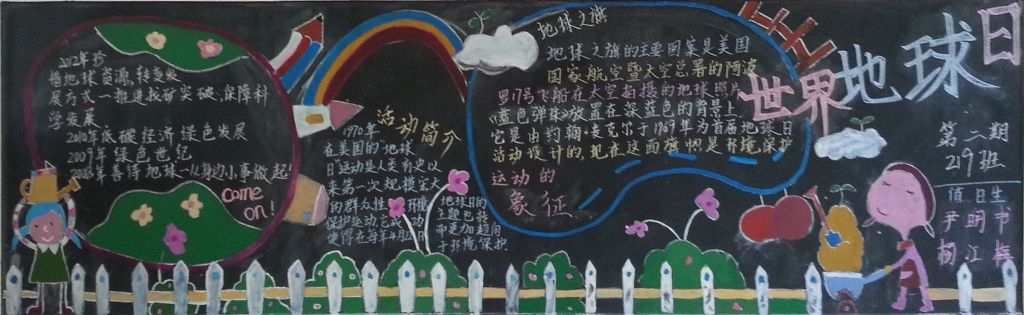 2012年珍
惜地球资源,转变发
展方式—推进找矿突破,保障科
学发展
2010年低碳经济绿色发展
2009年绿色世纪
2008年善待地球—从身边小事做起!
come
on!
活动简介
1970年
在美国的地球
日活动是人类有史以
来第一次规模宏大
的群众性的环境
保护运动,
使得在每年4月22日
地球日的
主题也
而更加趋向
于环境保护
地球之旗
地球之旗的主要图案是美国
国家航空暨太空总署的阿波
罗17号飞船在太空拍摄的地球照片
《蓝色弹珠》放置在深蓝色的背景上,
它是由约翰·麦克尔于1969年为首届地球日
活动设计的,现在这面旗帜是环境保护
运动的
象征
世界地球日
第二期
219班
值日生
尹明书
杨江梅